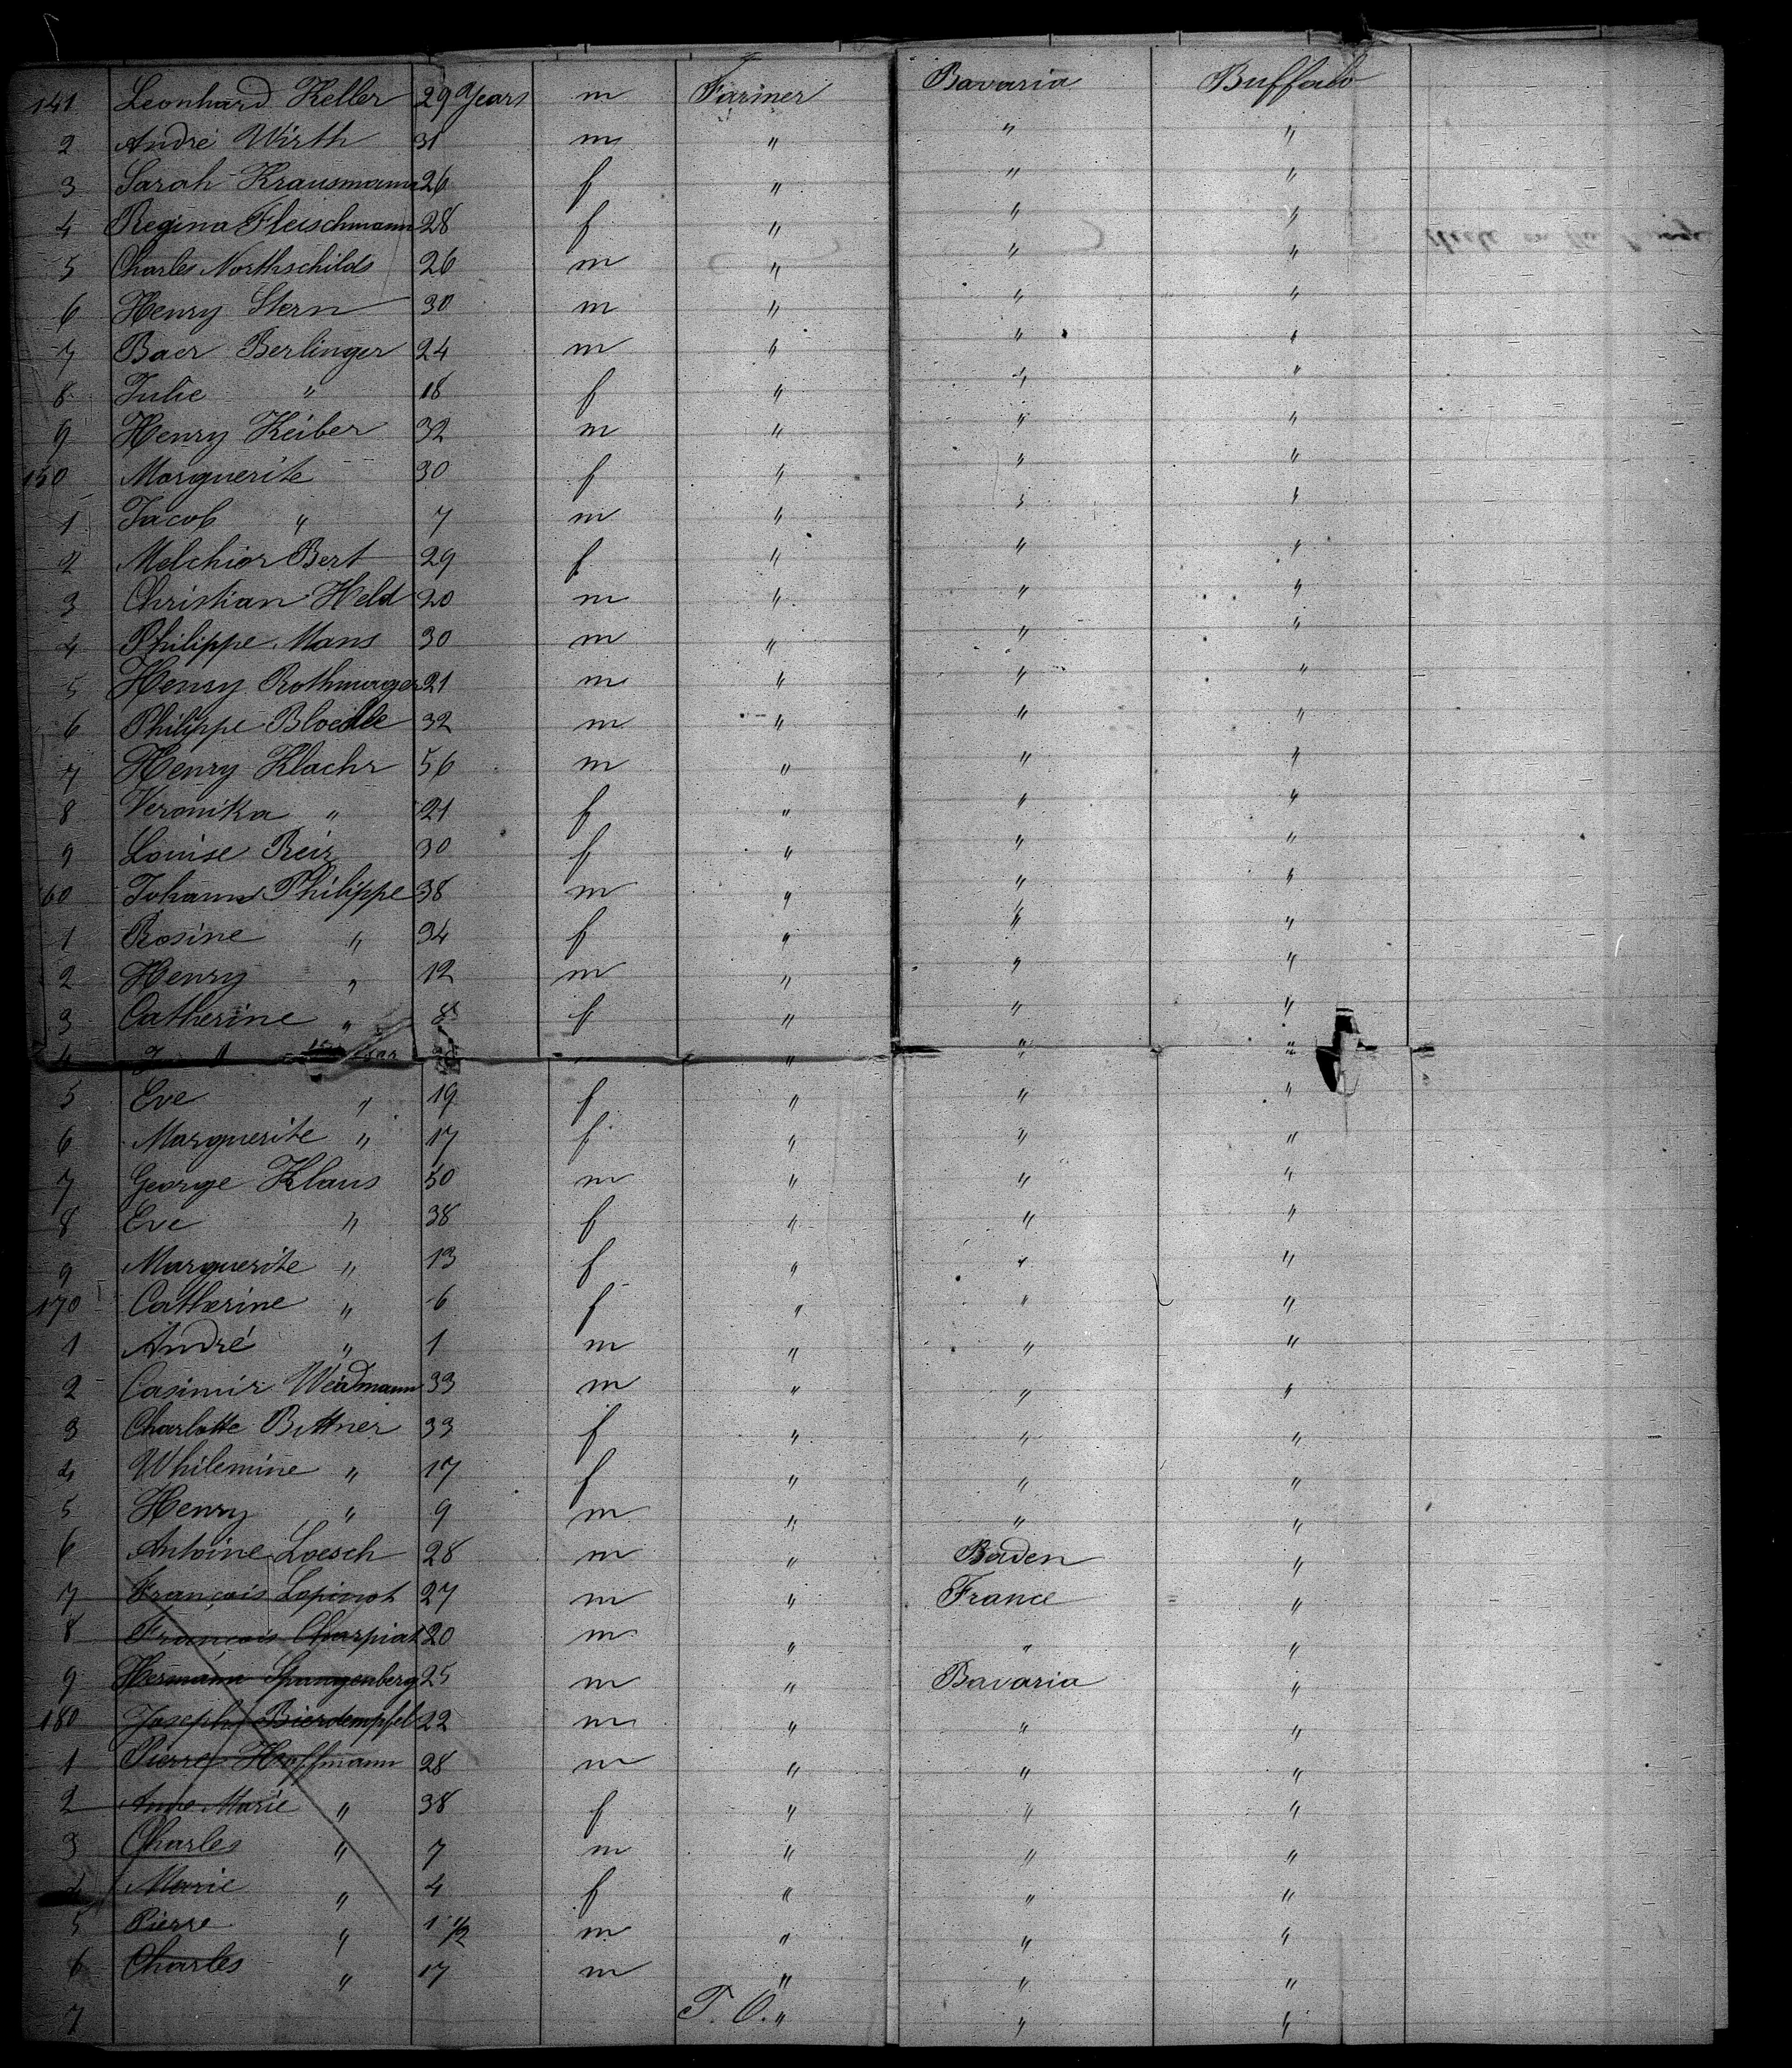 141 Leonhard Keller 29 Years m Farmer Bavaria Buffalo
2 André Wirth 31 m " " "
3 Sarah Krausmann 26 f " " "
4 Regina Fleischmann 28 f " " "
5 Charles Northschilds 26 m " " "
6 Henry Stern 30 m " " "
7 Baer Berlinger 24 m " " "
8 Julie " 18 f " " "
9 Henry Keiber 32 m " " "
150 Marguerite 30 f " " "
1 Jacob " 7 m " " "
2 Melchior Bert 29 f " " "
3 Christian Held 20 m " " "
4 Philippe Mans 30 m " " "
5 Henry 21 m " " "
6 Philippe Bloedle 32 m " " "
7 Henry Klachr 56 m " " "
8 Veronika " 21 f " " "
9 Louise Reiz 30 f " " "
60 Johann Philippe 38 m " " "
1 Rosine " 34 f " " "
2 Henry " 12 m " " "
3 Catherine " 8 f " " "
4 " " "
5 Eve " 19 f " " "
6 Marguerite " 17 f " " "
7 George Klaus 50 m " " "
8 Eve " 38 f " " "
9 Marguerite " 13 f " " "
170 Catherine " 6 f " " "
1 André " 1 m " " "
2 Casimir Weidmann 33 m " " "
3 Charlotte Bittner 33 f " " "
4 Whilemine " 17 f " " "
5 Henry " 9 m " " "
6 Antoine Loesch 28 m " Baden "
7 François Lapinot 27 m " France "
8 François Charpiat 20 m " " "
9 Hermann Spangenberg 25 m " Bavaria "
180 Joseph Bierdempfel 22 m " " "
1 Pierre Hoffmann 28 m " " "
2 Anne Marie " 38 f " " "
3 Charles " 7 m " " "
4 Marie " 4 f " " "
5 Pierre " 1 1/2 m " " "
6 Charles " 17 m " " "
7 T. O. " " "